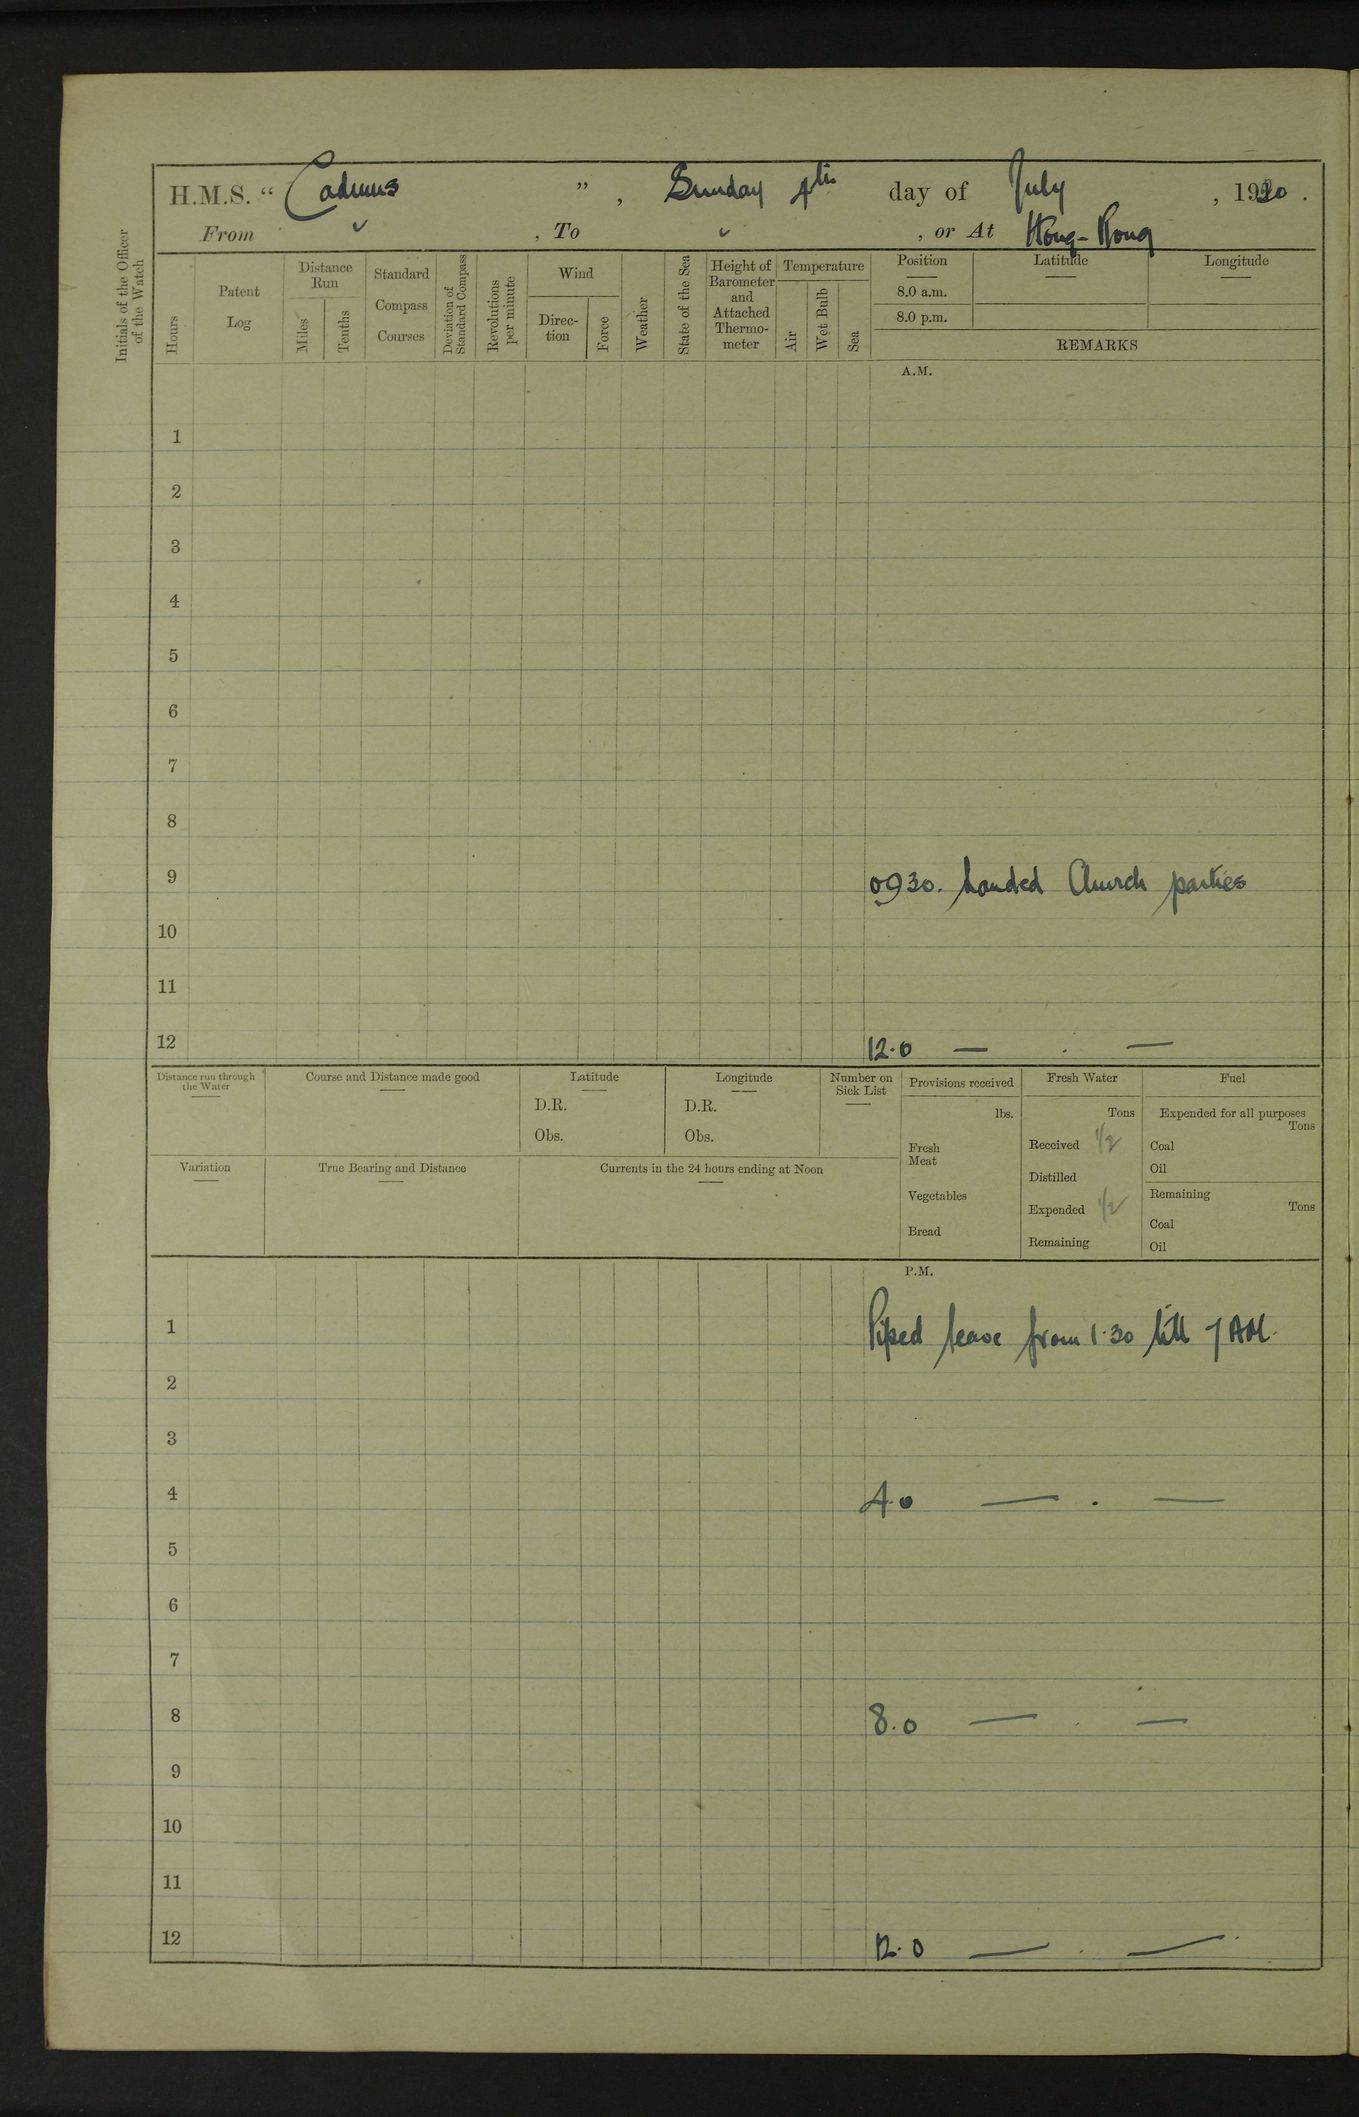 H.M.S. “ Cadmus ”, Sunday 4th day of July, 1920.
From , To , or At Hong-Kong
Initials of the Officer of the Watch
Hours
Patent Log
Distance Run
Miles
Tenths
Standard Compass Courses
Deviation of Standard Compass
Revolutions per minute
Wind
Direc-tion
Force
Weather
State of the Sea
Height of Barometer and Attached Thermo-meter
Temperature
Air
Wet Bulb
Sea
Position
Latitude
Longitude
8.0 a.m.
8.0 p.m.
REMARKS
A.M.
1
2
3
4
5
6
7
8
9 0930. Landed Church parties
10
11
12 12.0 — . —
Distance run through the Water
Course and Distance made good
Latitude
D.R.
Obs.
Longitude
D.R.
Obs.
Number on Sick List
Provisions received
lbs.
Fresh Meat
Vegetables
Bread
Fresh Water
Tons
Received 1/2
Distilled
Expended 1/2
Remaining
Fuel
Expended for all purposes
Tons
Coal
Oil
Remaining
Tons
Coal
Oil
Variation
True Bearing and Distance
Currents in the 24 hours ending at Noon
P.M.
1 Piped leave from 1.30 till 7 AM.
2
3
4 4.0 — . —
5
6
7
8 8.0 — . —
9
10
11
12 12.0 — . —